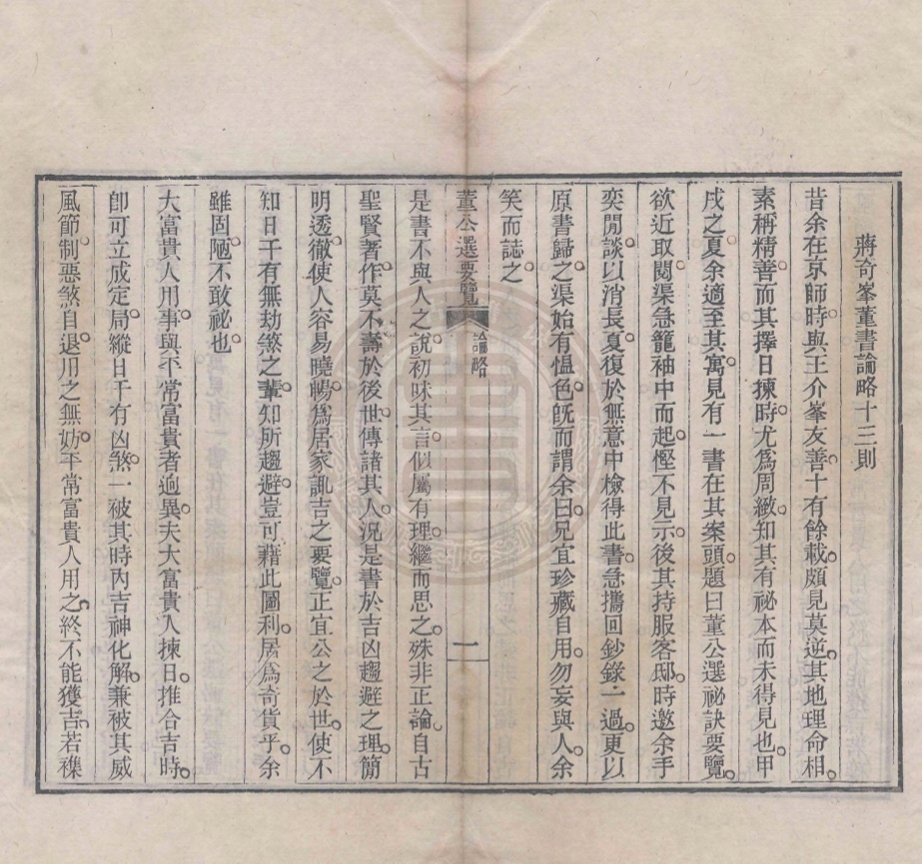 蔣奇峯董書論略十三則
昔余在京師時與王介峯友善十有餘載頗見莫逆其地理命相
素稱精善而其擇日揀時尤爲周緻知其有祕本而未得見也甲
戌之夏余適至其寓見有一書在其案頭題曰董公選祕訣要覽
欲近取閱渠急籠袖中而起慳不見示後其持服客邸時邀余手
奕閒談以消長夏復於無意中檢得此書急攜回鈔錄一過更以
原書歸之渠始有慍色旣而謂余曰兄宜珍藏自用勿妄與人余
笑而誌之
董公選要覽 論略 一
是書不與人之說初味其言似屬有理繼而思之殊非正論自古
聖賢著作莫不壽於後世傳諸其人况是書於吉凶趨避之理簡
明透徹使人容易曉暢爲居家諏吉之要覽正宜公之於世使不
知日干有無刼煞之輩知所趨避豈可藉此圖利居爲奇貨乎余
雖固陋不敢祕也
大富貴人用事與平常富貴者逈異夫大富貴人揀日推合吉時
卽可立成定局縱日干有凶煞一被其時內吉神化解兼被其威
風節制惡煞自退用之無妨平常富貴人用之終不能獲吉若襍